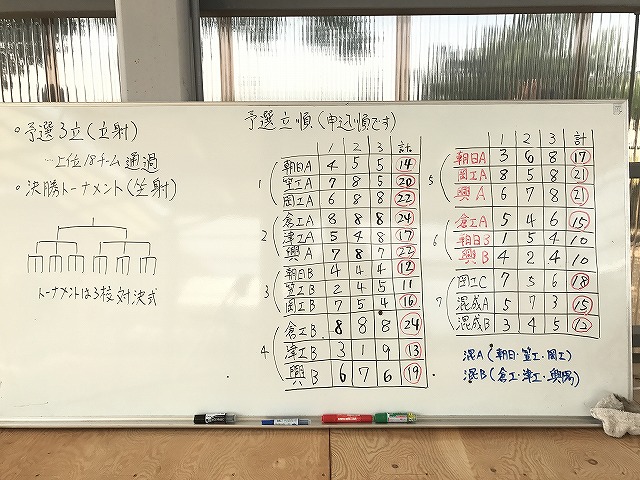 予選立順(申込順です)
・予選3立(立射)
…上位18チーム通過
・決勝トーナメント(坐射)
トーナメントは3校対決式
1 2 3 計
1 朝日A 4 5 5 14
笠工A 7 8 5 20
岡工A 6 8 8 22
2 倉工A 8 8 8 24
津工A 5 4 8 17
興A 7 8 7 22
3 朝日B 4 4 4 12
笠工B 2 4 5 11
岡工B 7 5 4 16
4 倉工B 8 8 8 24
津工B 3 1 9 13
興B 6 7 6 19
1 2 3 計
5 朝日A 3 6 8 17
岡工A 8 5 8 21
興A 6 7 8 21
6 倉工A 5 4 6 15
朝日B 1 5 4 10
興B 4 2 4 10
7 岡工C 7 5 6 18
混成A 5 7 3 15
混成B 3 4 5 12
混A(朝日・笠工・岡工)
混B(倉工・津工・興陽)